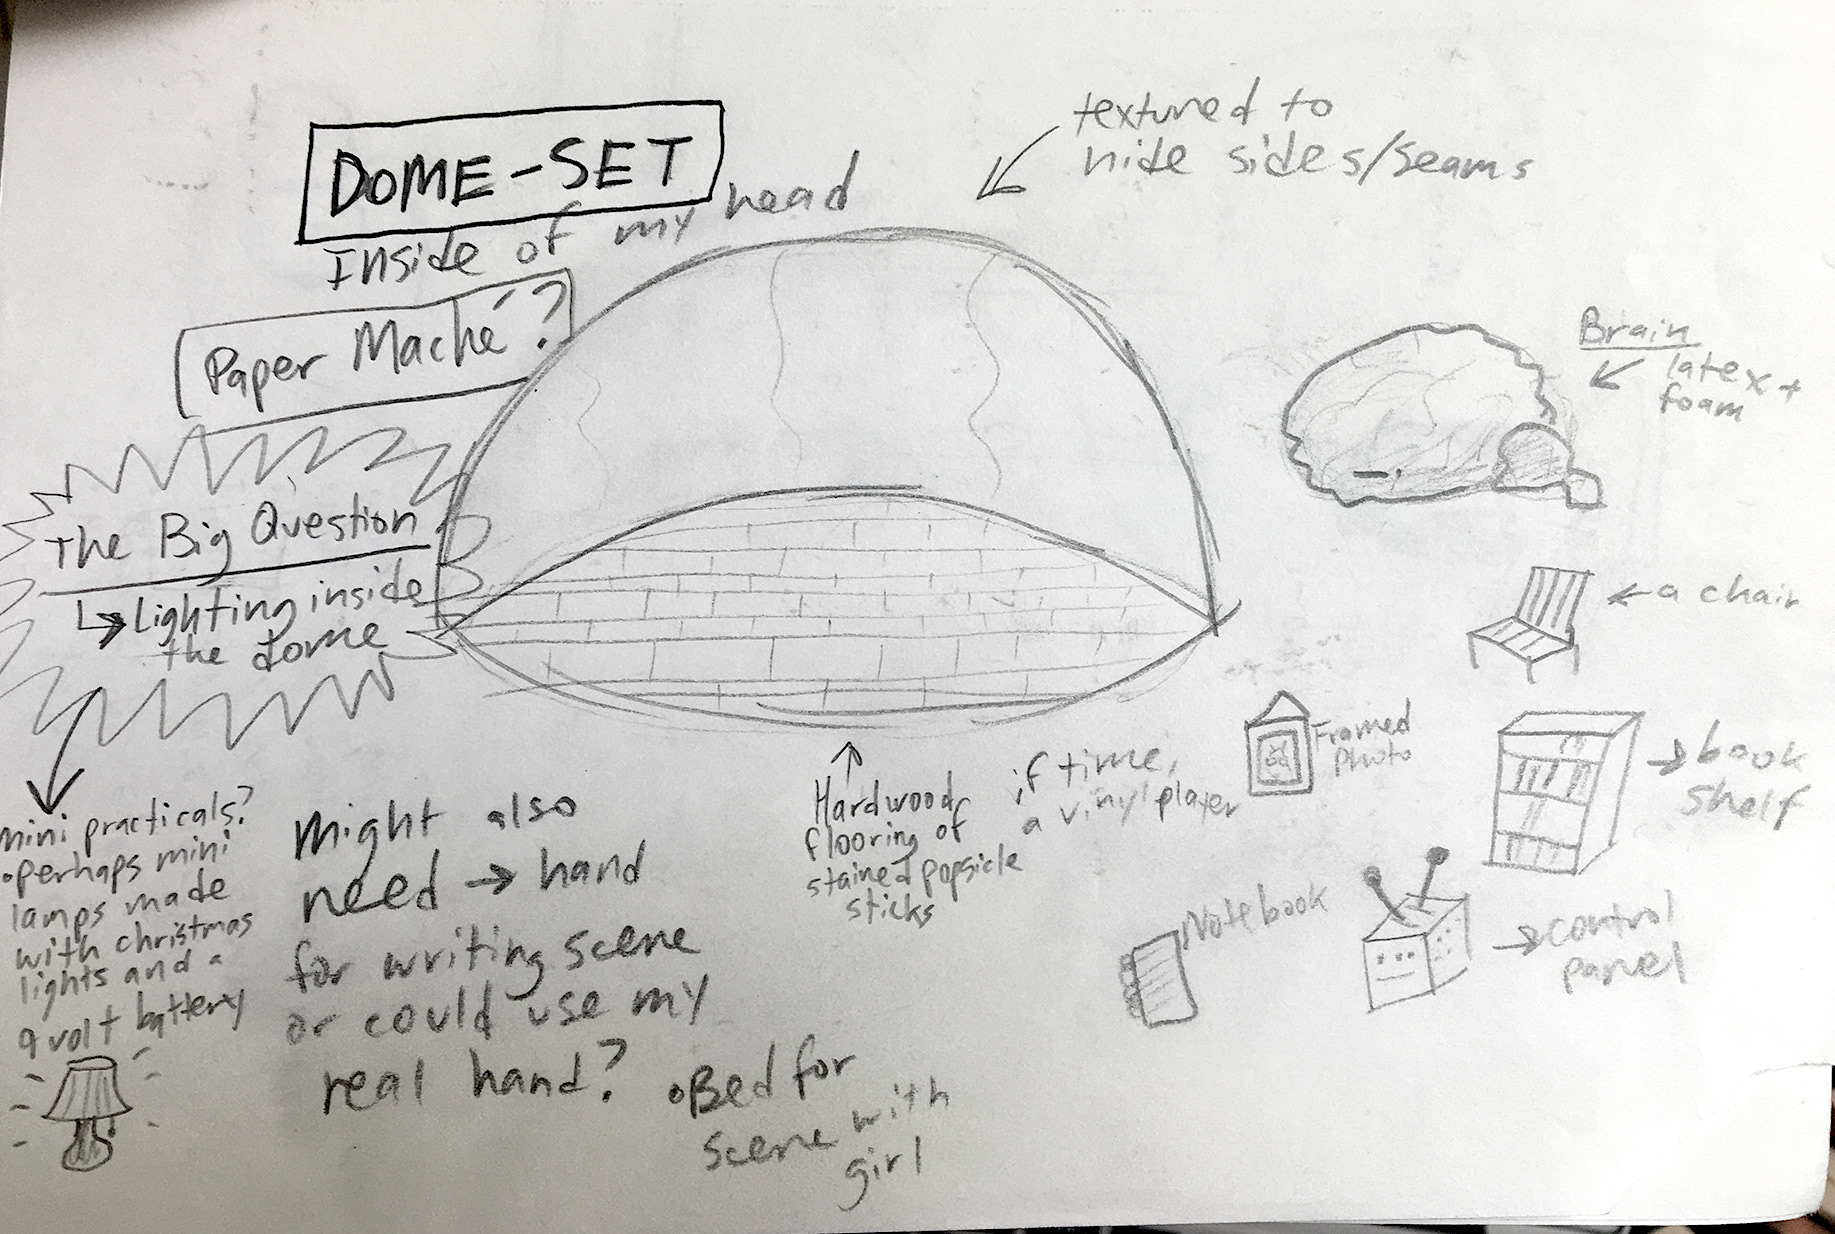 DOME-SET
Inside of my head
Paper Maché?
textured to
hide sides/seams
The Big Question
↳ Lighting inside
the dome
mini practicals?
• perhaps mini
lamps made
with christmas
lights and a
9 volt battery
might also
need → hand
for writing scene
or could use my
real hand?
• Bed for
scene with
girl
Hardwood
flooring of
stained popsicle
sticks
if time,
a vinyl player
Brain
latex +
foam
← a chair
Framed
Photo
→ book
shelf
Notebook
→ control
panel